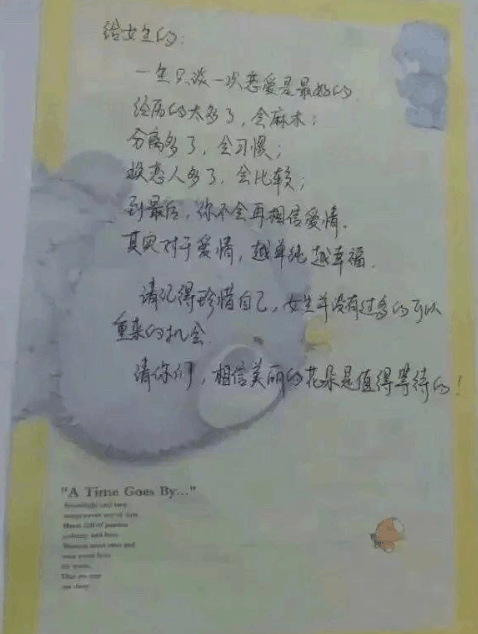 给女生的:
一生只谈一次恋爱是最好的
经历的太多了,会麻木;
分离多了,会习惯;
换恋人多了,会比较;
到最后,你不会再相信爱情.
其实对于爱情,越单纯越幸福.
请记得珍惜自己,女生并没有过多的可以
重来的机会
请你们,相信美丽的花朵是值得等待的!
"A Time Goes By..."